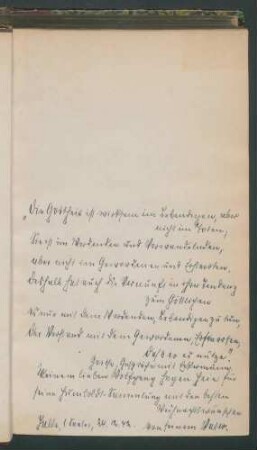 "Die Gottheit ist wirksam im Lebendigen, aber
nicht im Toten;
sie ist im Werdenden und Verwandelnden,
aber nicht im Gewordenen und Erstarrten.
Deshalb hat auch die Vernunft in ihrer Tendenz
zum Göttlichen
es nur mit dem Werdenden, Lebendigen zu tun,
der Verstand mit dem Gewordenen, Erstarrten,
daß er es nutze."
Goethe, Gespräche mit Eckermann.
Meinem lieben Wolfgang Hagen Hein für
seine Humboldt-Sammlung mit den besten
Weihnachtswünschen
Halle (Saale), 24. 12.
von seinem Vater.